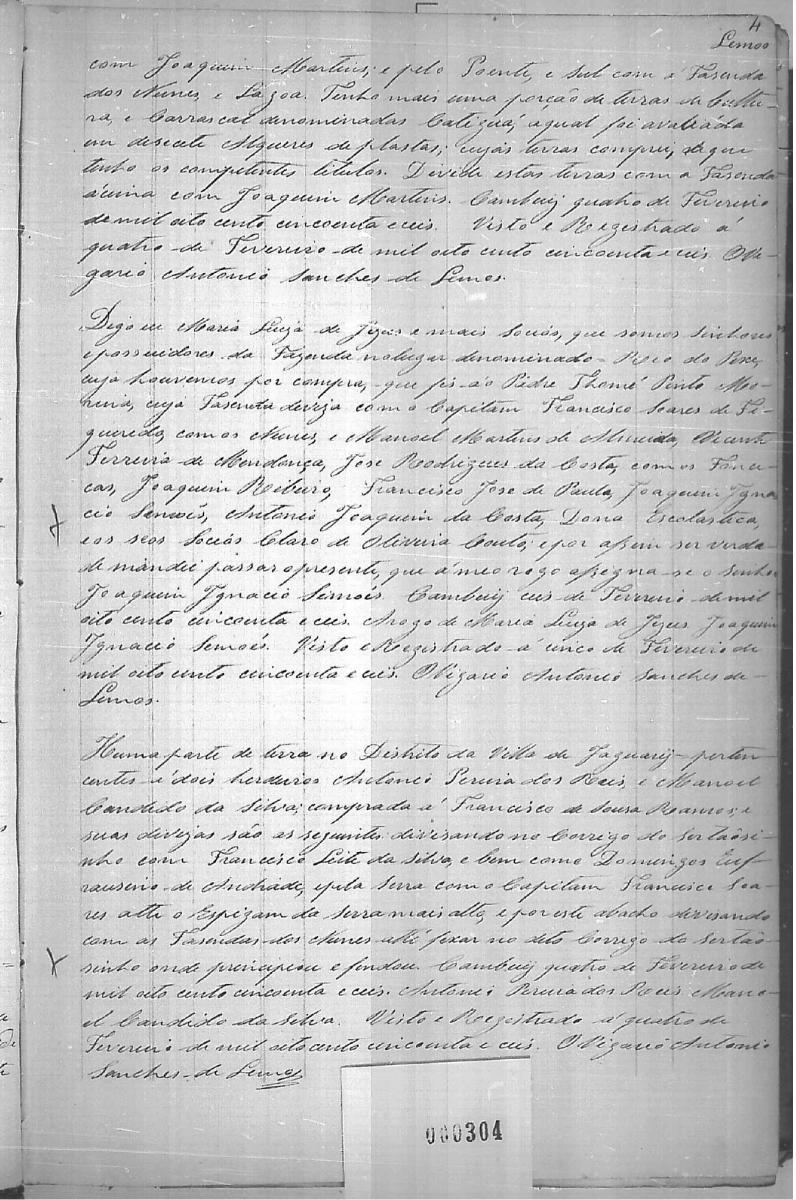 4
Lemos
com Joaquim Martins; e pelo Poente, e Sul com a Fasenda
dos Nunes, e Lagoa. Tenho mais uma porção de terras de Cultu-
ra, e Carrascal denominadas Catiguá, a qual foi avaliáda
em desecete Alqueres de plantas; cujas terras comprei, de que
tenho os competentes titulos. Divide estas terras com a Fasenda
ácima com Joaquim Martins. Cambuÿ quatro de Fevereiro
de mil oito cento cincoenta e ceis. Visto e Rezistrado á
quatro de Fevereiro de mil oito cento cincoenta e ceis. O Vi-
gario Antonio Sanches de Lemos.
Digo eu Maria Luiza de Jezus e mais Sociós, que somos Sinhores
e possuidores da Fazenda no lugar denominado - Rio do Peixe,
cuja houvemos por compra, que fis ao Pádre Thomé Pinto Mo-
reira, cuja Fasenda deviza com o Capitam Francisco Soares de Fi-
gueredo, com os Nunes, e Manoel Martins de Almeida, Vicente
Ferreira de Mendonça, Jose Rodrigues da Costa, com os Fonce-
cas, Joaquim Ribeiro, Francisco Jose de Paula, Joaquim Igna-
cio Simoés, Antonio Joaquim da Costa, Dona Escolastica,
e os seos Sociós Claro de Oliveira Couto; e por assim ser verda-
de mándei pássar o presente, que á meo rogo assigna-se o Senhor
Joaquim Ignacio Simoés. Cambuÿ ceis de Fevereiro de mil
oito cento cincoenta e ceis. Arogo de Maria Luiza de Jezus Joaquim
Ignacio Simoés. Visto e Rezistrado á cinco de Fevereiro de
mil oito cento cincoenta e ceis. O Vigario Antonio Sanches de
Lemos.
Huma parte de terra no Distrito da Villa de Jaguarÿ perten-
centes á dois herdeiros Antonio Pereira dos Reis, e Manoel
Candido da Silva; comprada á Francisco de Sousa Ramos; e
suas divezas são as seguintes: divisando no Corrego do Sertãosi-
nho com Francisco Leite da Silva, e bem como Domingos Euf-
rauseino de Andrade, e pela Serra com o Capitam Francisco Soa-
res athe o Espigam da Serra mais alto, e por este abacho devisando
com as Fasendas dos Nunes athé fixar no dito Corrego do Sertão-
sinho onde principiou e findou. Cambuÿ quatro de Fevereiro de
mil oito cento cincoenta e ceis. Antonio Pereira dos Reis Mano-
el Candido da Silva. Visto e Rezistrado á quatro de
Fevereiro de mil oito cento cincoenta e ceis. O Vigario Antonio
Sanches de Lemos
000304